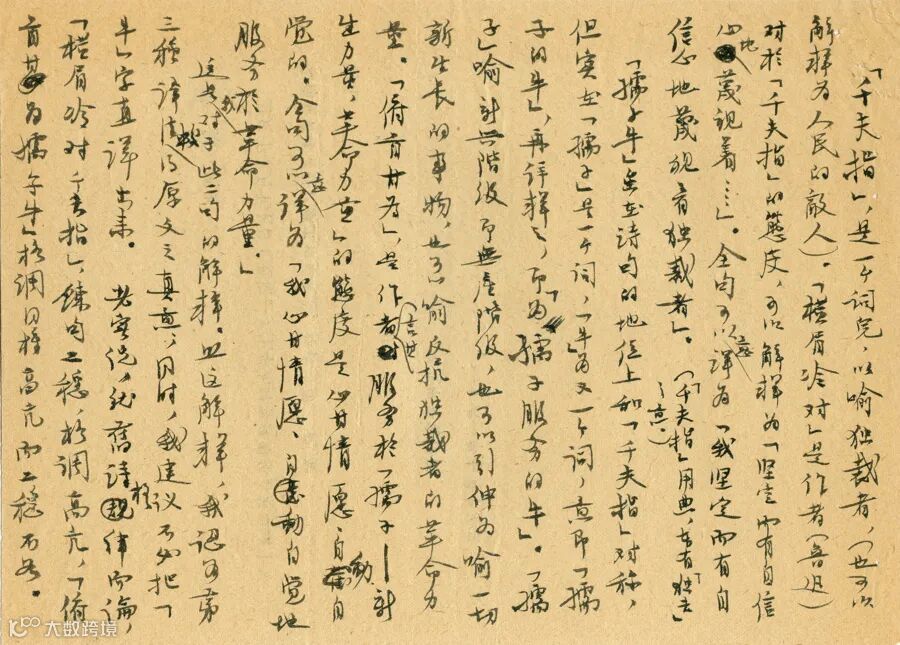 「千夫指」，是一个词，以喻独裁者，（也可以
解释为人民的敌人）。「横眉冷对」是作者（鲁迅）
对於「千夫指」的态度，可以解释为「坚定而有自信
心地蔑视着……」。全句可以意译为「我坚定而有自
信心地蔑视着独裁者」。（「千夫指」用典，古有「独夫」之意）
「孺子牛」虽在诗句的地位上和「千夫指」对称，
但实在「孺子」是一个词，「牛」为又一个词，意即「孺
子的牛」，再译释之，即「为孺子服务的牛」。「孺
子」喻新兴阶级即無产阶级，也可以引伸为喻一切
新生长的事物，也可喻反抗独裁者的革命力
量。「俯首甘为」，是作者言其服务於「孺子——新
生力量，革命力量」的态度是心甘情愿、自动自
觉的。全句可以意译为「我心甘情愿、自动自觉地
服务於革命力量。」
这是我对于此二句的解释。照这解释，我认为第
三种译法较得原文之真意，同时，我建议不必把「
牛」字直译出来。老实说，就旧诗格律而论，
「横眉冷对千夫指」，鍊句工稳，格调高亢，「俯
首甘为孺子牛」格调同样高亢而工稳不如。
大数跨境